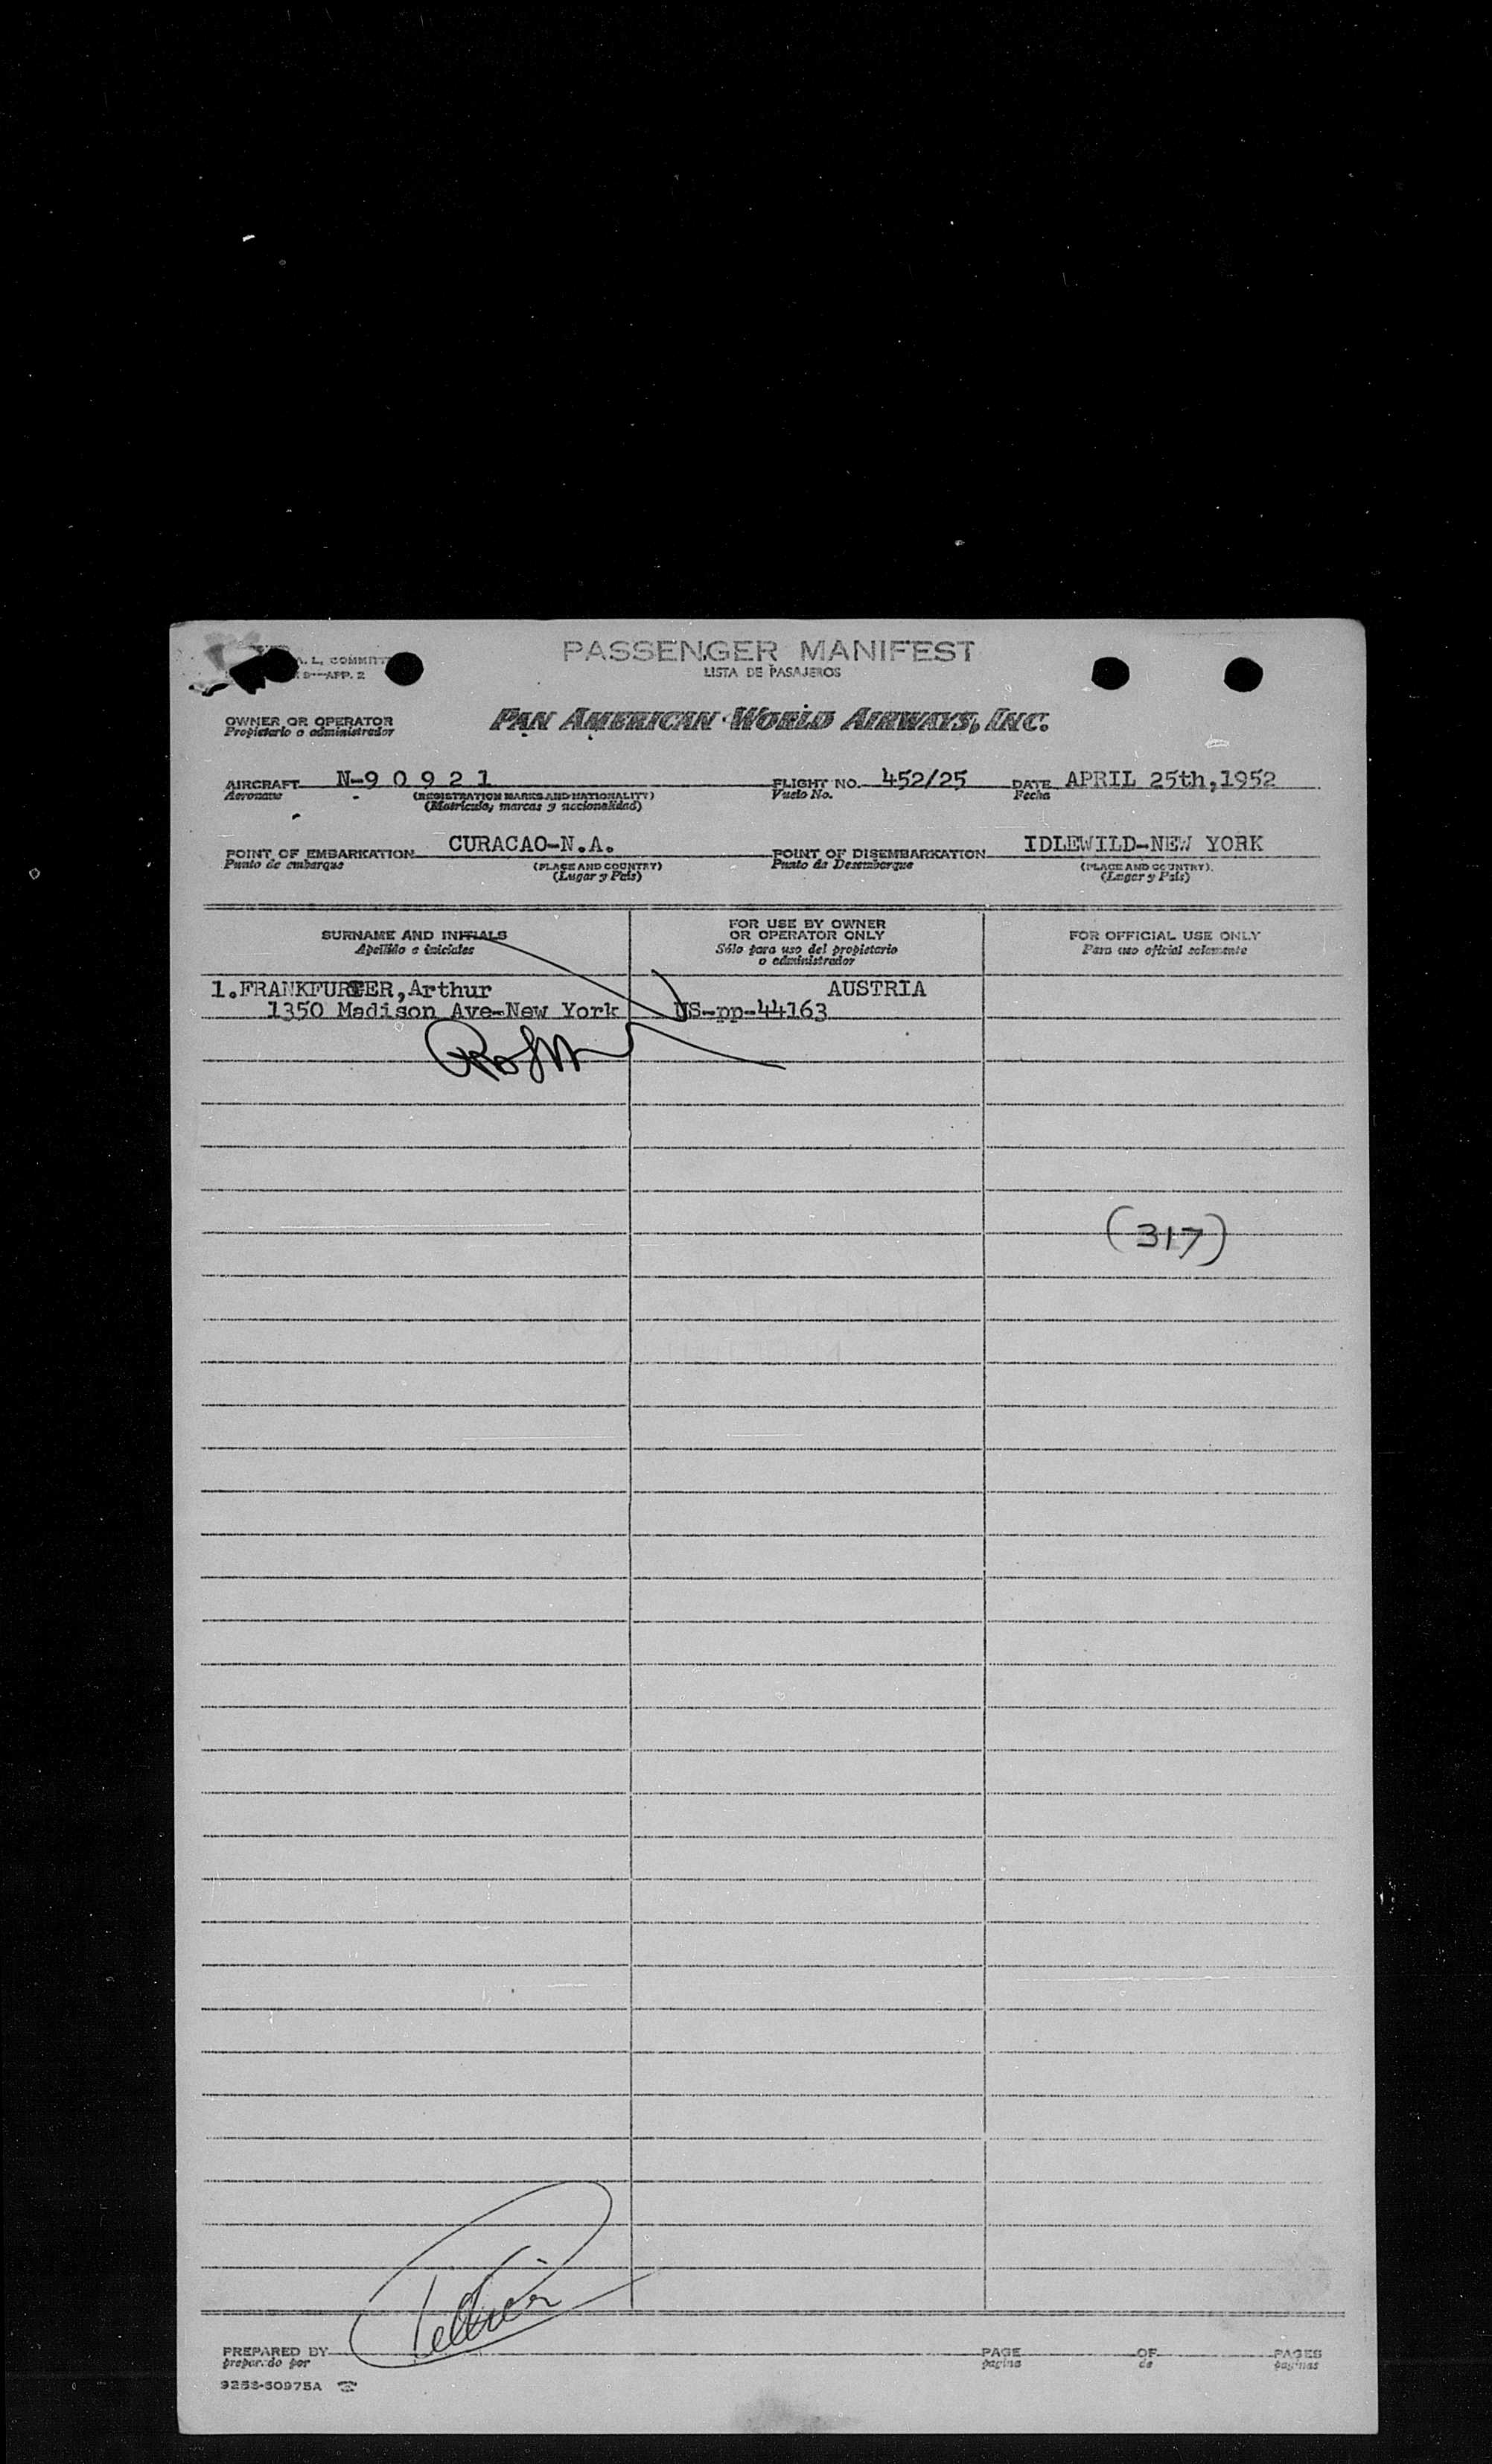 PASSENGER MANIFEST
A. L. COMMITT
9—APP. 2
LISTA DE PASAJEROS
OWNER OR OPERATOR
Propietario o administrador
PAN AMERICAN WORLD AIRWAYS, INC.
AIRCRAFT N-9 0 9 2 1 FLIGHT NO. 452/25 DATE APRIL 25th,1952
Aeronave (REGISTRATION MARKS AND NATIONALITY) Vuelo No. Fecha
(Matricula, marcas y nacionalidad)
POINT OF EMBARKATION CURACAO-N.A. POINT OF DISEMBARKATION IDLEWILD-NEW YORK
Punto de embarque (PLACE AND COUNTRY) Punto de Desembarque (PLACE AND COUNTRY)
(Lugar y Pais) (Lugar y Pais)
SURNAME AND INITIALS FOR USE BY OWNER OR OPERATOR ONLY FOR OFFICIAL USE ONLY
Apellido e iniciales Sólo para uso del propietario o administrador Para uso oficial solamente
1.FRANKFURTER,Arthur AUSTRIA
1350 Madison Ave-New York US-pp-44163
(317)
PREPARED BY PAGE OF PAGES
preparado por pagina de paginas
9253-50975A